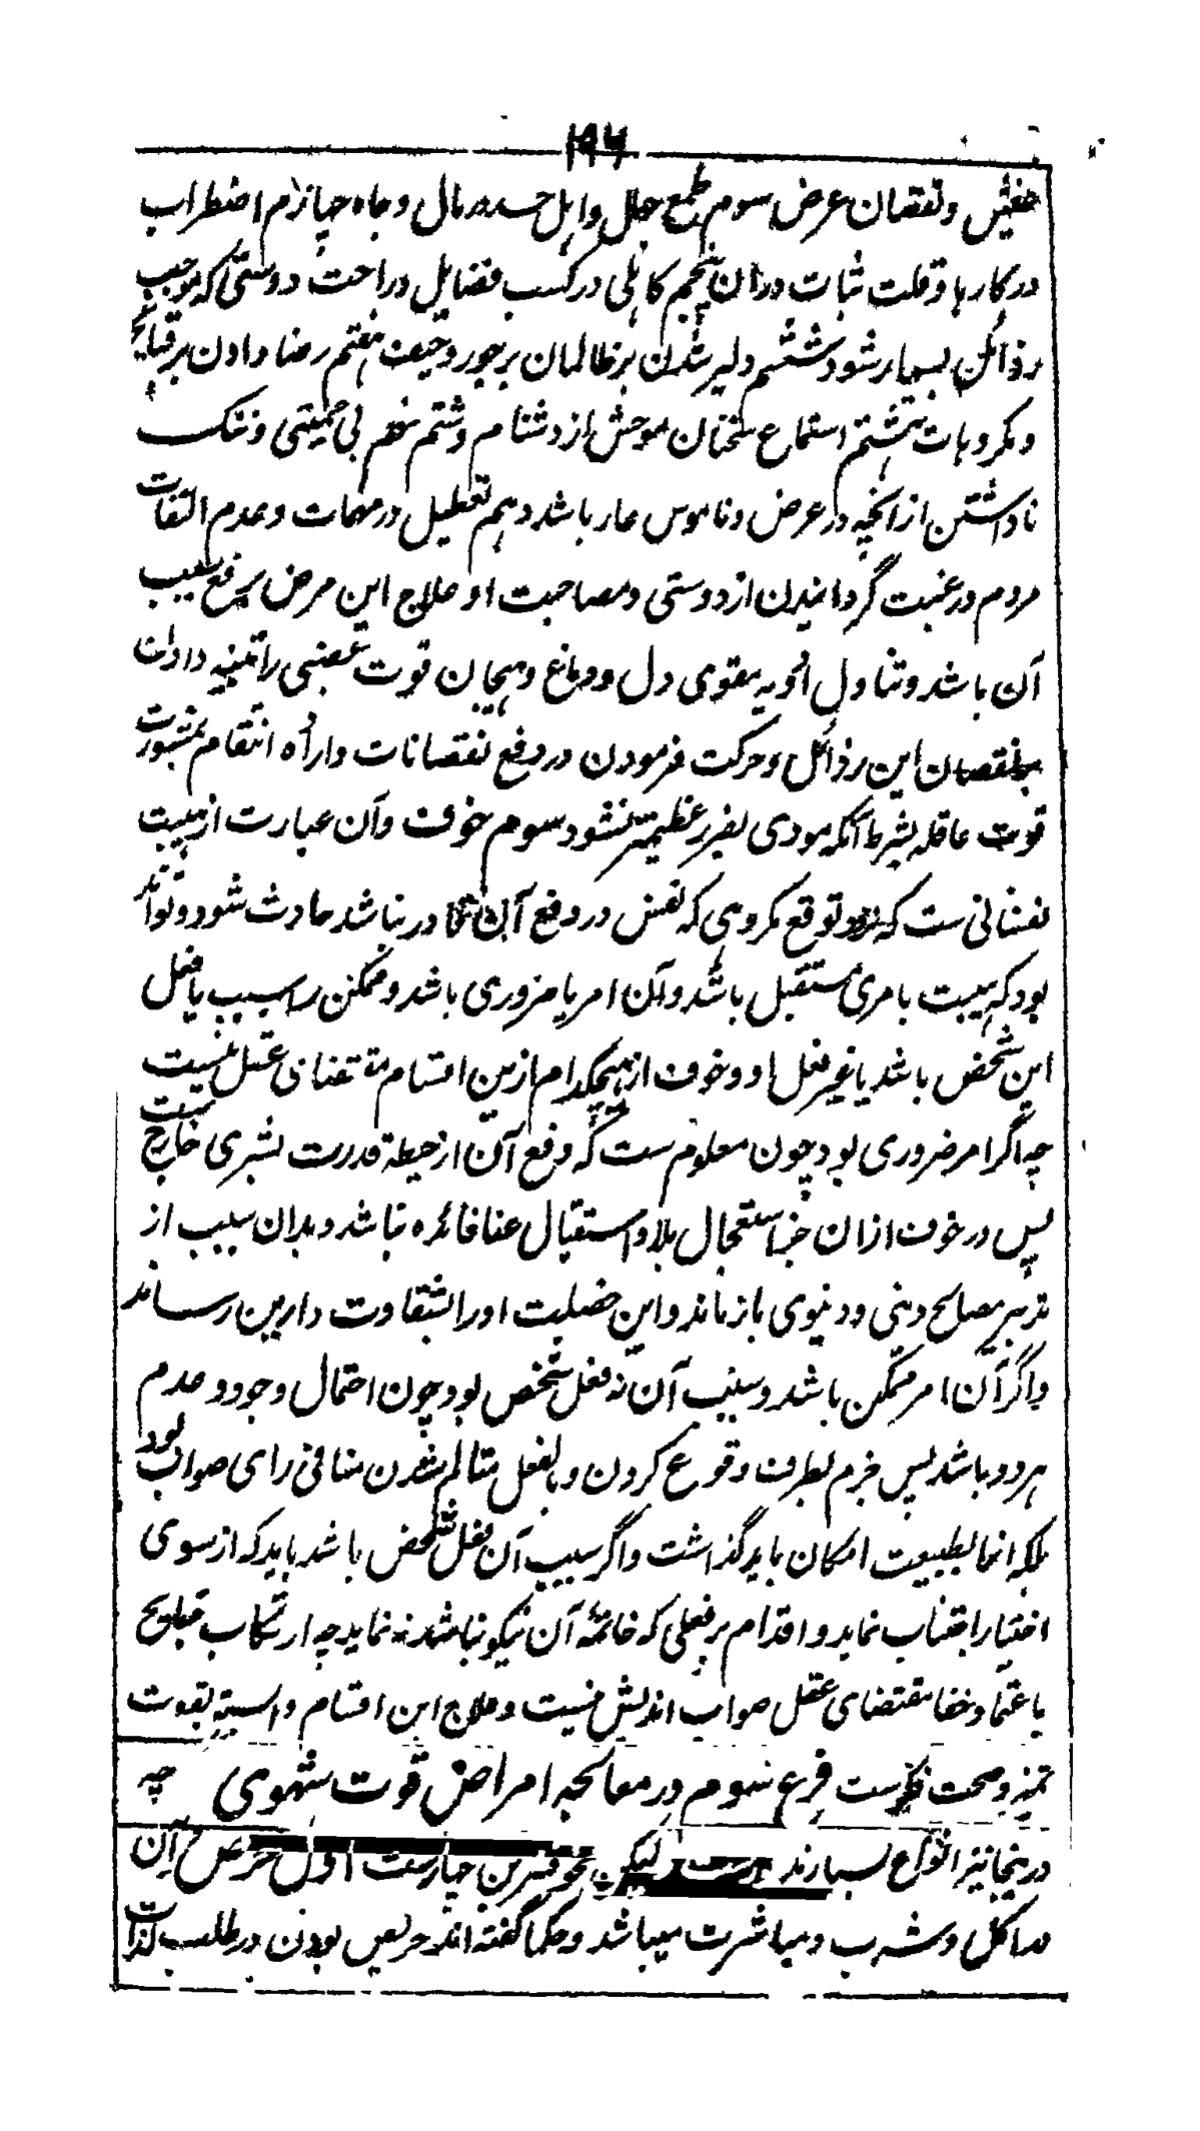 ۱۹۶
عیش و نقصان عرض سوم طمع جلل و اهل حسد در مال و جاه چهارم اضطراب
در کارها و قلت ثبات دران پنجم کاهلی در کسب فضایل و راحت دوستی که موجب
رذائل بسیار شود ششم دلیر شدن بر ظالمان بر جور و حیف هفتم رضا دادن بر قبایح
و مکروهات هشتم استماع سخنان موحش از دشنام و شتم نهم بی حمیتی و ننگ
ناداشتن از انچه در عرض و ناموس عار باشد دهم تعطیل در مهمات و عدم التفات
مردم در غبت گردانیدن از دوستی و مصاحبت او علاج این مرض برفع سبب
آن باشد و تناول ادویه مقوی دل و دماغ و هیجان قوت غضبی را تنبیه دادن
بنقصان این رذائل و حرکت فرمودن در دفع نقصانات و اراده انتقام بمشورت
قوت عاقله بشرط آنکه مودی بضرر عظیمتر نشود سوم خوف و آن عبارت از هیبت
نفسانی ست که از توقع مکروهی که نفس در دفع آن قادر نباشد حادث شود و تواند
بود که هیبت بامری مستقبل باشد و آن امر یا ضروری باشد و ممکن را سبب یا فعل
این شخص باشد یا غیر فعل او و خوف از هیچکدام ازین اقسام مقتضای عقل نیست
چه اگر امر ضروری بود چون معلوم ست که دفع آن از حیطه قدرت بشری خارج ست
پس در خوف ازان جز استعجال بلا و استقبال عنا فائده نباشد و بدان سبب از
تدبیر مصالح دینی و دنیوی بازماند و این خصلت او را بشقاوت دارین رساند
و اگر آن امر ممکن باشد و سبب آن نه فعل شخص بود چون احتمال وجود و عدم
هر دو باشد پس جزم بطرف وقوع کردن و بالفعل متالم شدن منافی رای صواب بود
بلکه انما بطبیعت امکان باید گذاشت و اگر سبب آن فعل شخص باشد باید که از سوی
اختیار اجتناب نماید و اقدام بر فعلی که خاتمهٔ آن نیکو نباشد نه نماید چه ارتکاب قبایح
باعتماد خفا مقتضای عقل صواب اندیش نیست و علاج این اقسام وابسته بقوت
تمیز و صحت فکر ست فرع سوم در معالجه امراض قوت شهوی چه
درینجا نیز انواع بسیارند لیکن مخوفترین چهارست اول حرص آن
در اکل و شرب و مباشرت میباشد و حکما گفته اند حریص بودن در طلب لذات